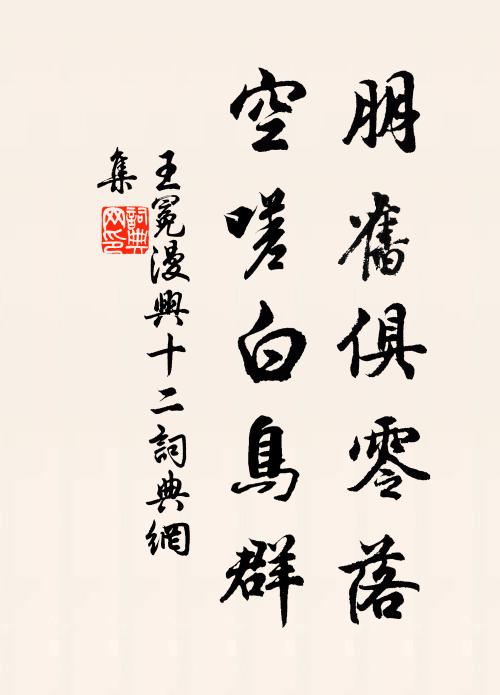 朋舊俱零落
空嗟白鳥群
王冕漫興十二詞典網
集
詞典網印